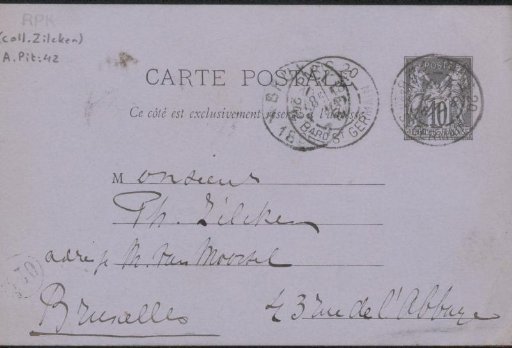 RPK
(coll. Zilcken)
A.Pit:42
CARTE POSTALE
Ce côté est exclusivement réservé à l'adresse
POSTES
10
PARIS
BARD ST GERMAIN
Monsieur
Ph. Zilcken
M. van Moorsel
Bruxelles
43 rue de l'Abbaye